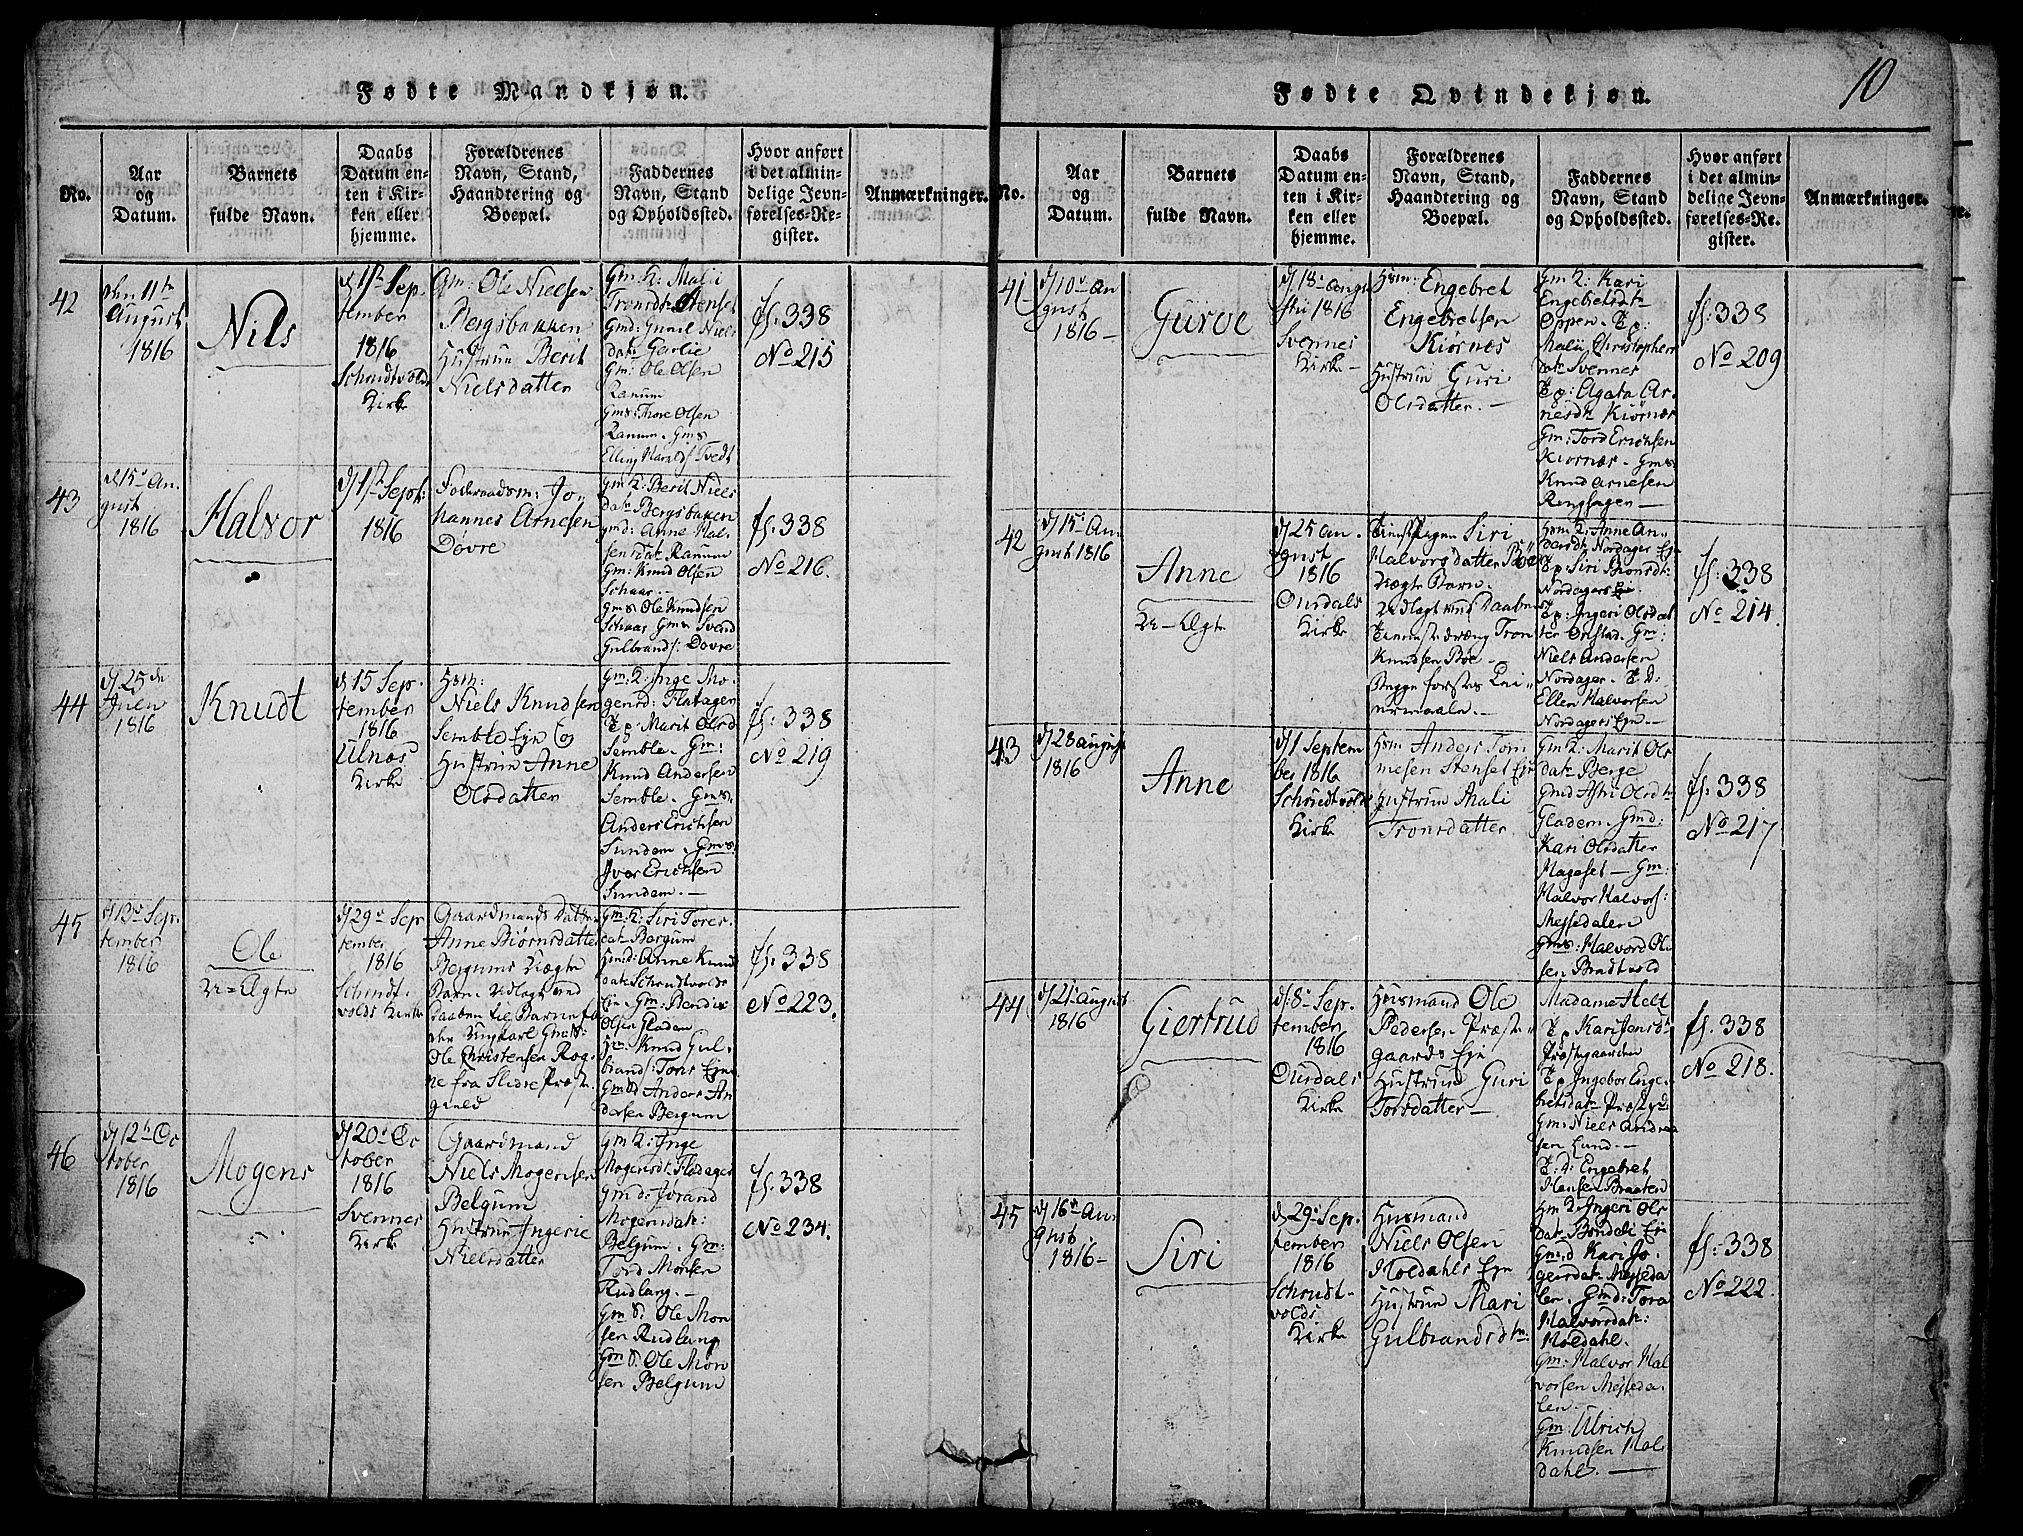 10
Fødte Mandkjøn.
No.
Aar
og
Datum.
Barnets
fulde Navn.
Daabs
Datum en-
ten i Kir-
ken eller
hjemme.
Forældrenes
Navn, Stand,
Haandtering og
Boepæl.
Faddernes
Navn, Stand
og Opholdssted.
Hvor anført
i det almin-
delige Jevn-
førelses-Re-
gister.
Anmærkninger.
42
den 11te
August
1816
Nils
d 1ste Sep-
tember
1816
Kirke
Gm: Ole Nielsen
Bergsbakken
Hustrue Berit
Nielsdatter
Gm: K: Mali
Tronsdtr Stenset
Gmd: Gunil Niels
datr Gerlie
Gm: Ole Olsen
Ranum
Gms: Thore Olsen
Ranum. Gms
Elling Haralds: Tvedt
fs: 338
No 215
43
d 15 Au-
gust
1816
Halvor
d 1ste Sept:
1816
Foderaadsm: Jo-
hannes Arnesen
Dovre
Gm K: Berit Niels
datr Bergsbaken
Gmd: Anne Hal-
sensdat: Ranum
Gm: Knud Olsen
Schaar.
Gms Ole Knudsen
Schaar Gms Svend
Gulbrands: Dovre
fs: 338
No 216.
44
d 25de
Juen
1816
Knudt
d 15 Sep-
tember
1816
Ulnes
Kirke
Hsm:
Niels Knudsen
Semble Eje og
Hustrue Anne
Olsdatter
Gm: K: Inge Mo-
gensd: Flatager
P: p: Marit Olsd
Semble. Gm:
Knud Andersen
Semble. Gms.
Anders Erichsen
Sundem. Gms:
Iver Erichsen
Sundem.
fs: 338
No 219
45
d 12 Sep-
tember
1816
Ole
U=Ægte
d 29 Sep
tember
1816
Schoudt-
volds Kirke
Gaardmands Datter
Anne Biørnsdatter
Bergums Uægte
Barn. Udlagt ved
Daaben til Barnefa-
der Ungkarl
Ole Christensen Rog-
ne fra Slidre Præste-
gield
Gm: K: Siri Tores-
datr Bergum
Hsmd: Anne Knud
datr Schoudtvolds
Eje. Gm: Bendix
Olsen Gladem
Hsm: Knud Gul-
brands: Tons Eje
Gmd Anders An-
dersen Bergum
fs: 338
No 223.
46
d 12te Oc
tober
1816
Mogens
d 20 Oc
tober
1816
Svennes
Kirke
Gaardmand
Niels Mogensen
Belgum
Hustrue Ingerie
Nielsdatter
Gm K: Inge
Mogensdt: Fladager
Gmd: Jorand
Mogensdatr:
Belgum. Gm:
Tord Monsen
Rudlang.
Gm S. Ole Mon
sen Rudlang
Gm S. Ole Mon
sen Belgum
fs: 338
No 234.
Fødte Qvindekjøn.
No.
Aar
og
Datum.
Barnets
fulde Navn.
Daabs
Datum en-
ten i Kir-
ken eller
hjemme.
Forældrenes
Navn, Stand,
Haandtering og
Boepæl.
Faddernes
Navn, Stand
og Opholdssted.
Hvor anført
i det almin-
delige Jevn-
førelses-Re-
gister.
Anmærkninger.
41
d 10 Au-
gust
1816
Gurve
d 18 Augu
sti 1816
Svennes
Kirke
Hsm: Engebret
Engebretsen
Kiørnes
Hustrue Guri
Olsdatter.
Gm K: Kari
Engebretsdtr
Oppen. P: p:
Mali Christopher
datr Svennes
P: p: Agata Ar-
nesdtr Kiørnæs
Gm: Tord Erichsen
Kiørnæs. Gms
Knud Arnesen
Ringsagen
fs: 338
No 209
42
d 15 Au-
gust 1816
Anne
U-Ægte
d 25 Au-
gust
1816
Ourdals
Kirke
Tienstepigen Siri
Halvorsdatter Bøes
Uægte Barn.
Udlagt ved Daaben
Tienistedræng Tron
Knudsen Bøe
Begge førstes Lei-
ermaale.
Hsm K: Anne An-
dersdt Nordager Eje
P: p: Siri Bionsdt:
Nordagers Eje.
P: p: Ingeri Olsdat
ter Onstad. Gm:
Niels Andersen
Nordager. P: D:
Ellen Halvorsen
Nordagers Eje.
fs: 338
No 214.
43
d 28 August
1816
Anne
d 1 Septem
ber 1816
Schoudtvolds
Kirke
Hsm Anders Tom
mesen Stenset Eje
Hustrue Mali
Tronsdatter
Gm K: Marit Ols
datr Berge
Gmd Astri Olsdtr
Gladem. Gmd:
Kari Olsdatter
Hageset. Gm:
Halvor Halvors:
Messedalen
Gms: Halvord Ol-
sen Bradtvold
fs: 338
No 217
44
d 21 August
1816
Giertrud
d 8 Sep-
tember
1816
Ourdals
Kirke
Husmand Ole
Pedersen Præste-
gaards Eje
Hustrue Guri
Torsdatter
Madame Helt
P: p Kari Jensdtr
Præstegaarden
P: p Ingebor Enge-
bretsdatr Præstegd:
Gm: Niels Andrea
sen Lund.
P: D: Engebret
Hansen Braaten
fs. 338
No 218.
45
d 16 Au-
gust
1816
Siri
d 29 Sep-
tember
1816
Schoudt-
volds
Kirke
Husmand
Niels Olsen
Moldahls Eje
Hustrue Mari
Gulbrandsdtr
Gm K: Ingeri Ols
datr Bondeli Eje
Gmd Kari Jo-
gensdatr Messeda-
len. Gmd: Tora
Halvorsdatr:
Moldahl.
Gm: Halvor Hal
vorsen Messeda-
len.
Gm: Ulrich
Knudsen Mol-
dahl.
fs: 338
No 222.